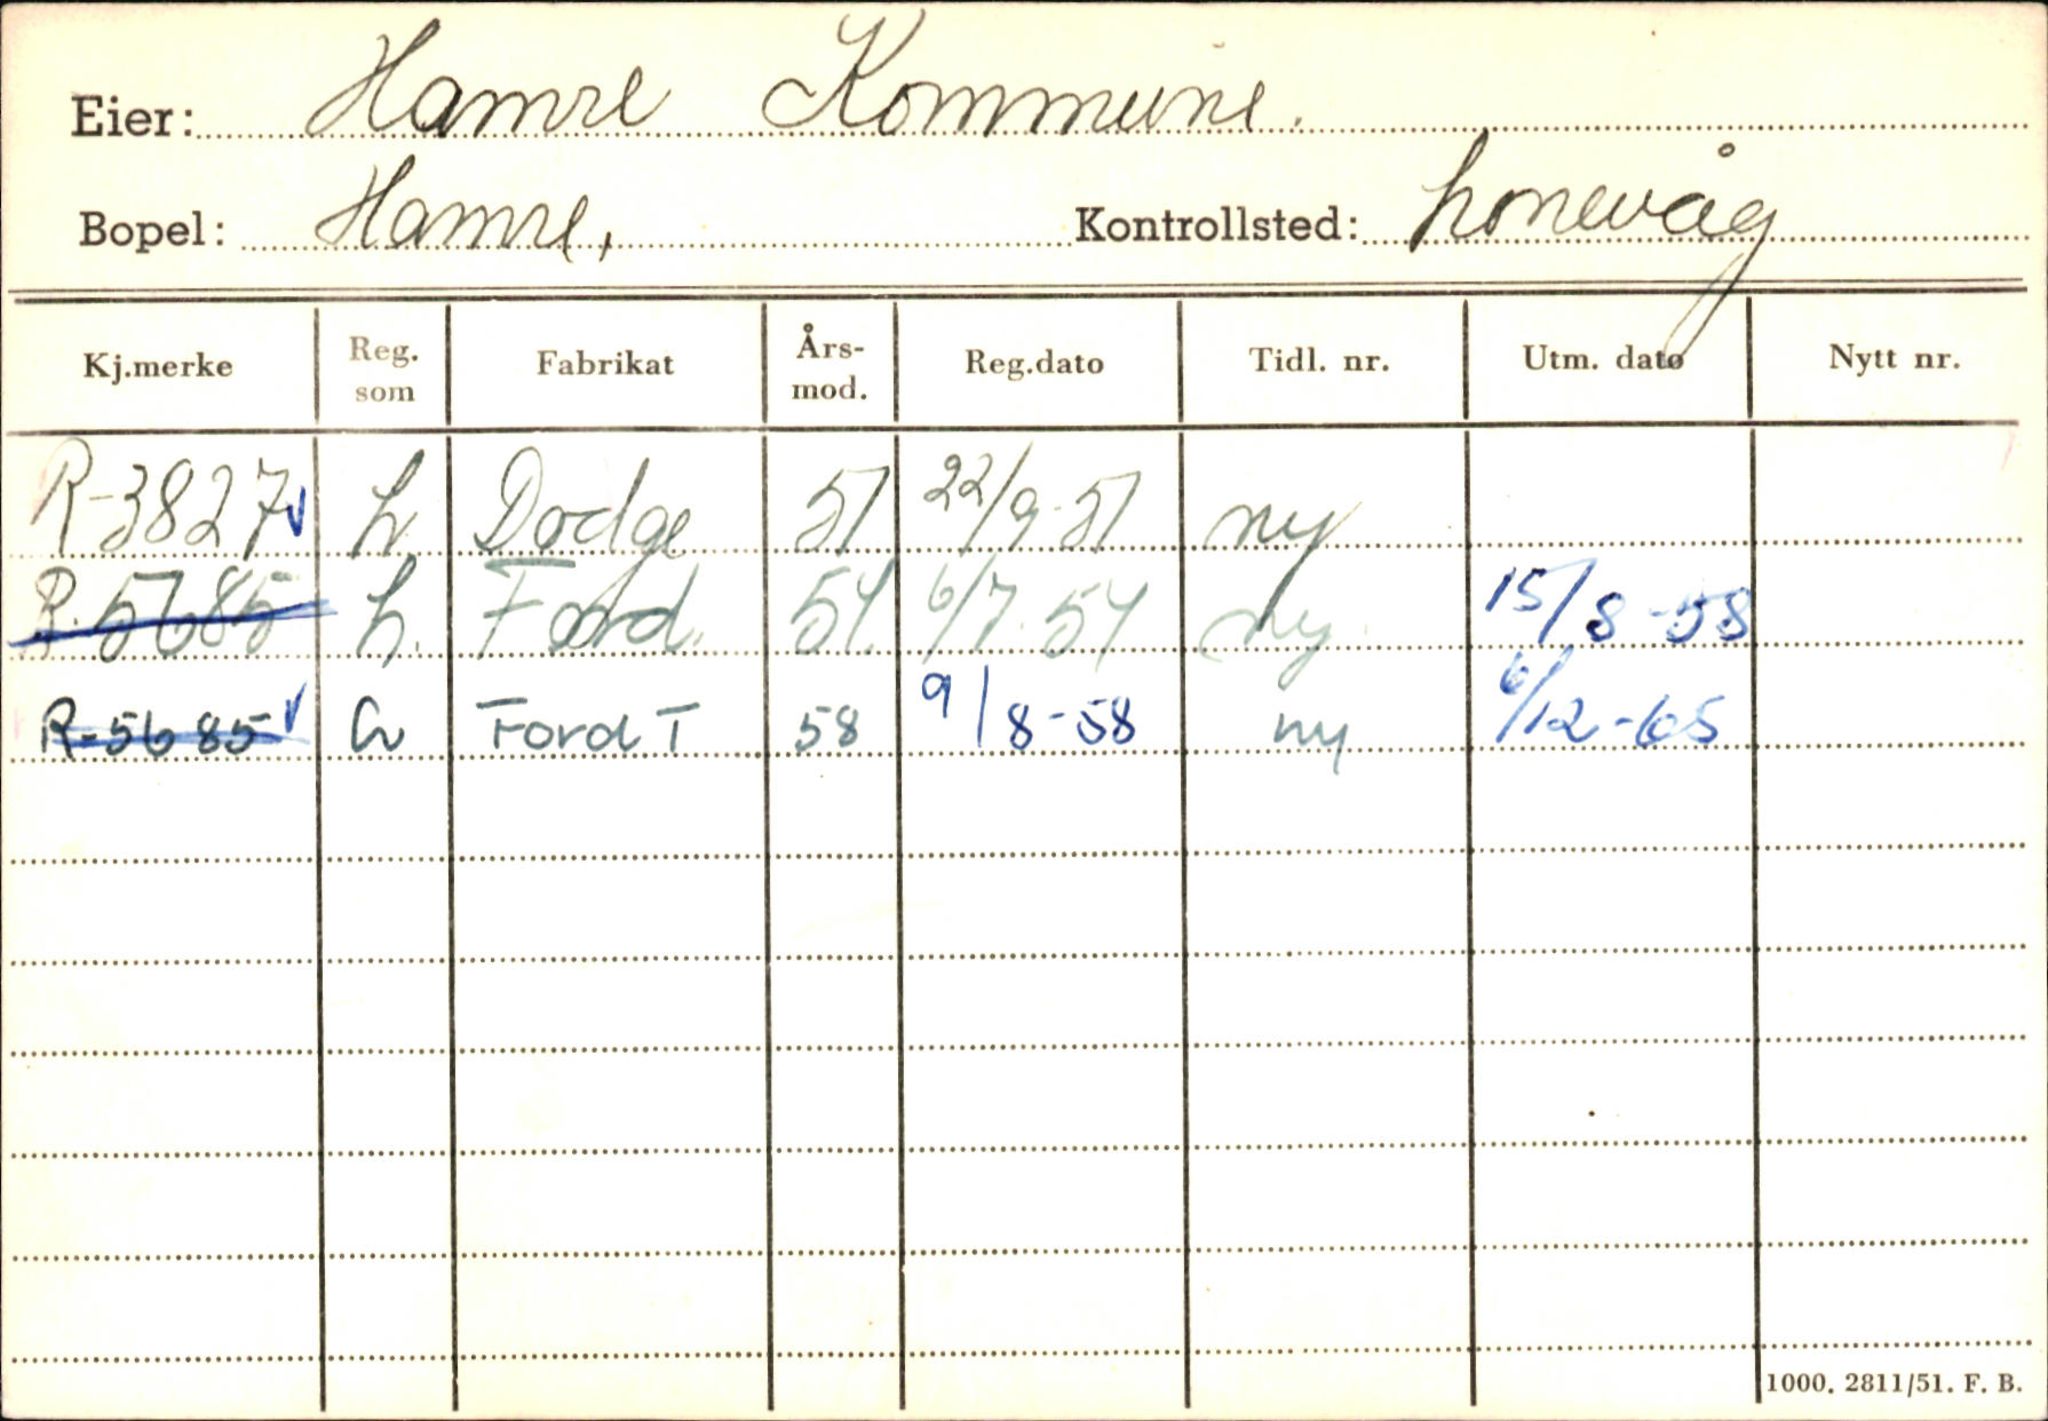 Eier: Hamre Kommune.
Bopel: Hamre, Kontrollsted: Lonevåg
Kj.merke Reg. som Fabrikat Års-mod. Reg.dato Tidl. nr. Utm. dato Nytt nr.
R-3827 L. Dodge 51 22/9-51 ny
R-5685 L. Ford 54. 6/7-54 ny 15/8-58
R-5685 Ford T 58 9/8-58 ny 6/12-65
1000. 2811/51. F. B.